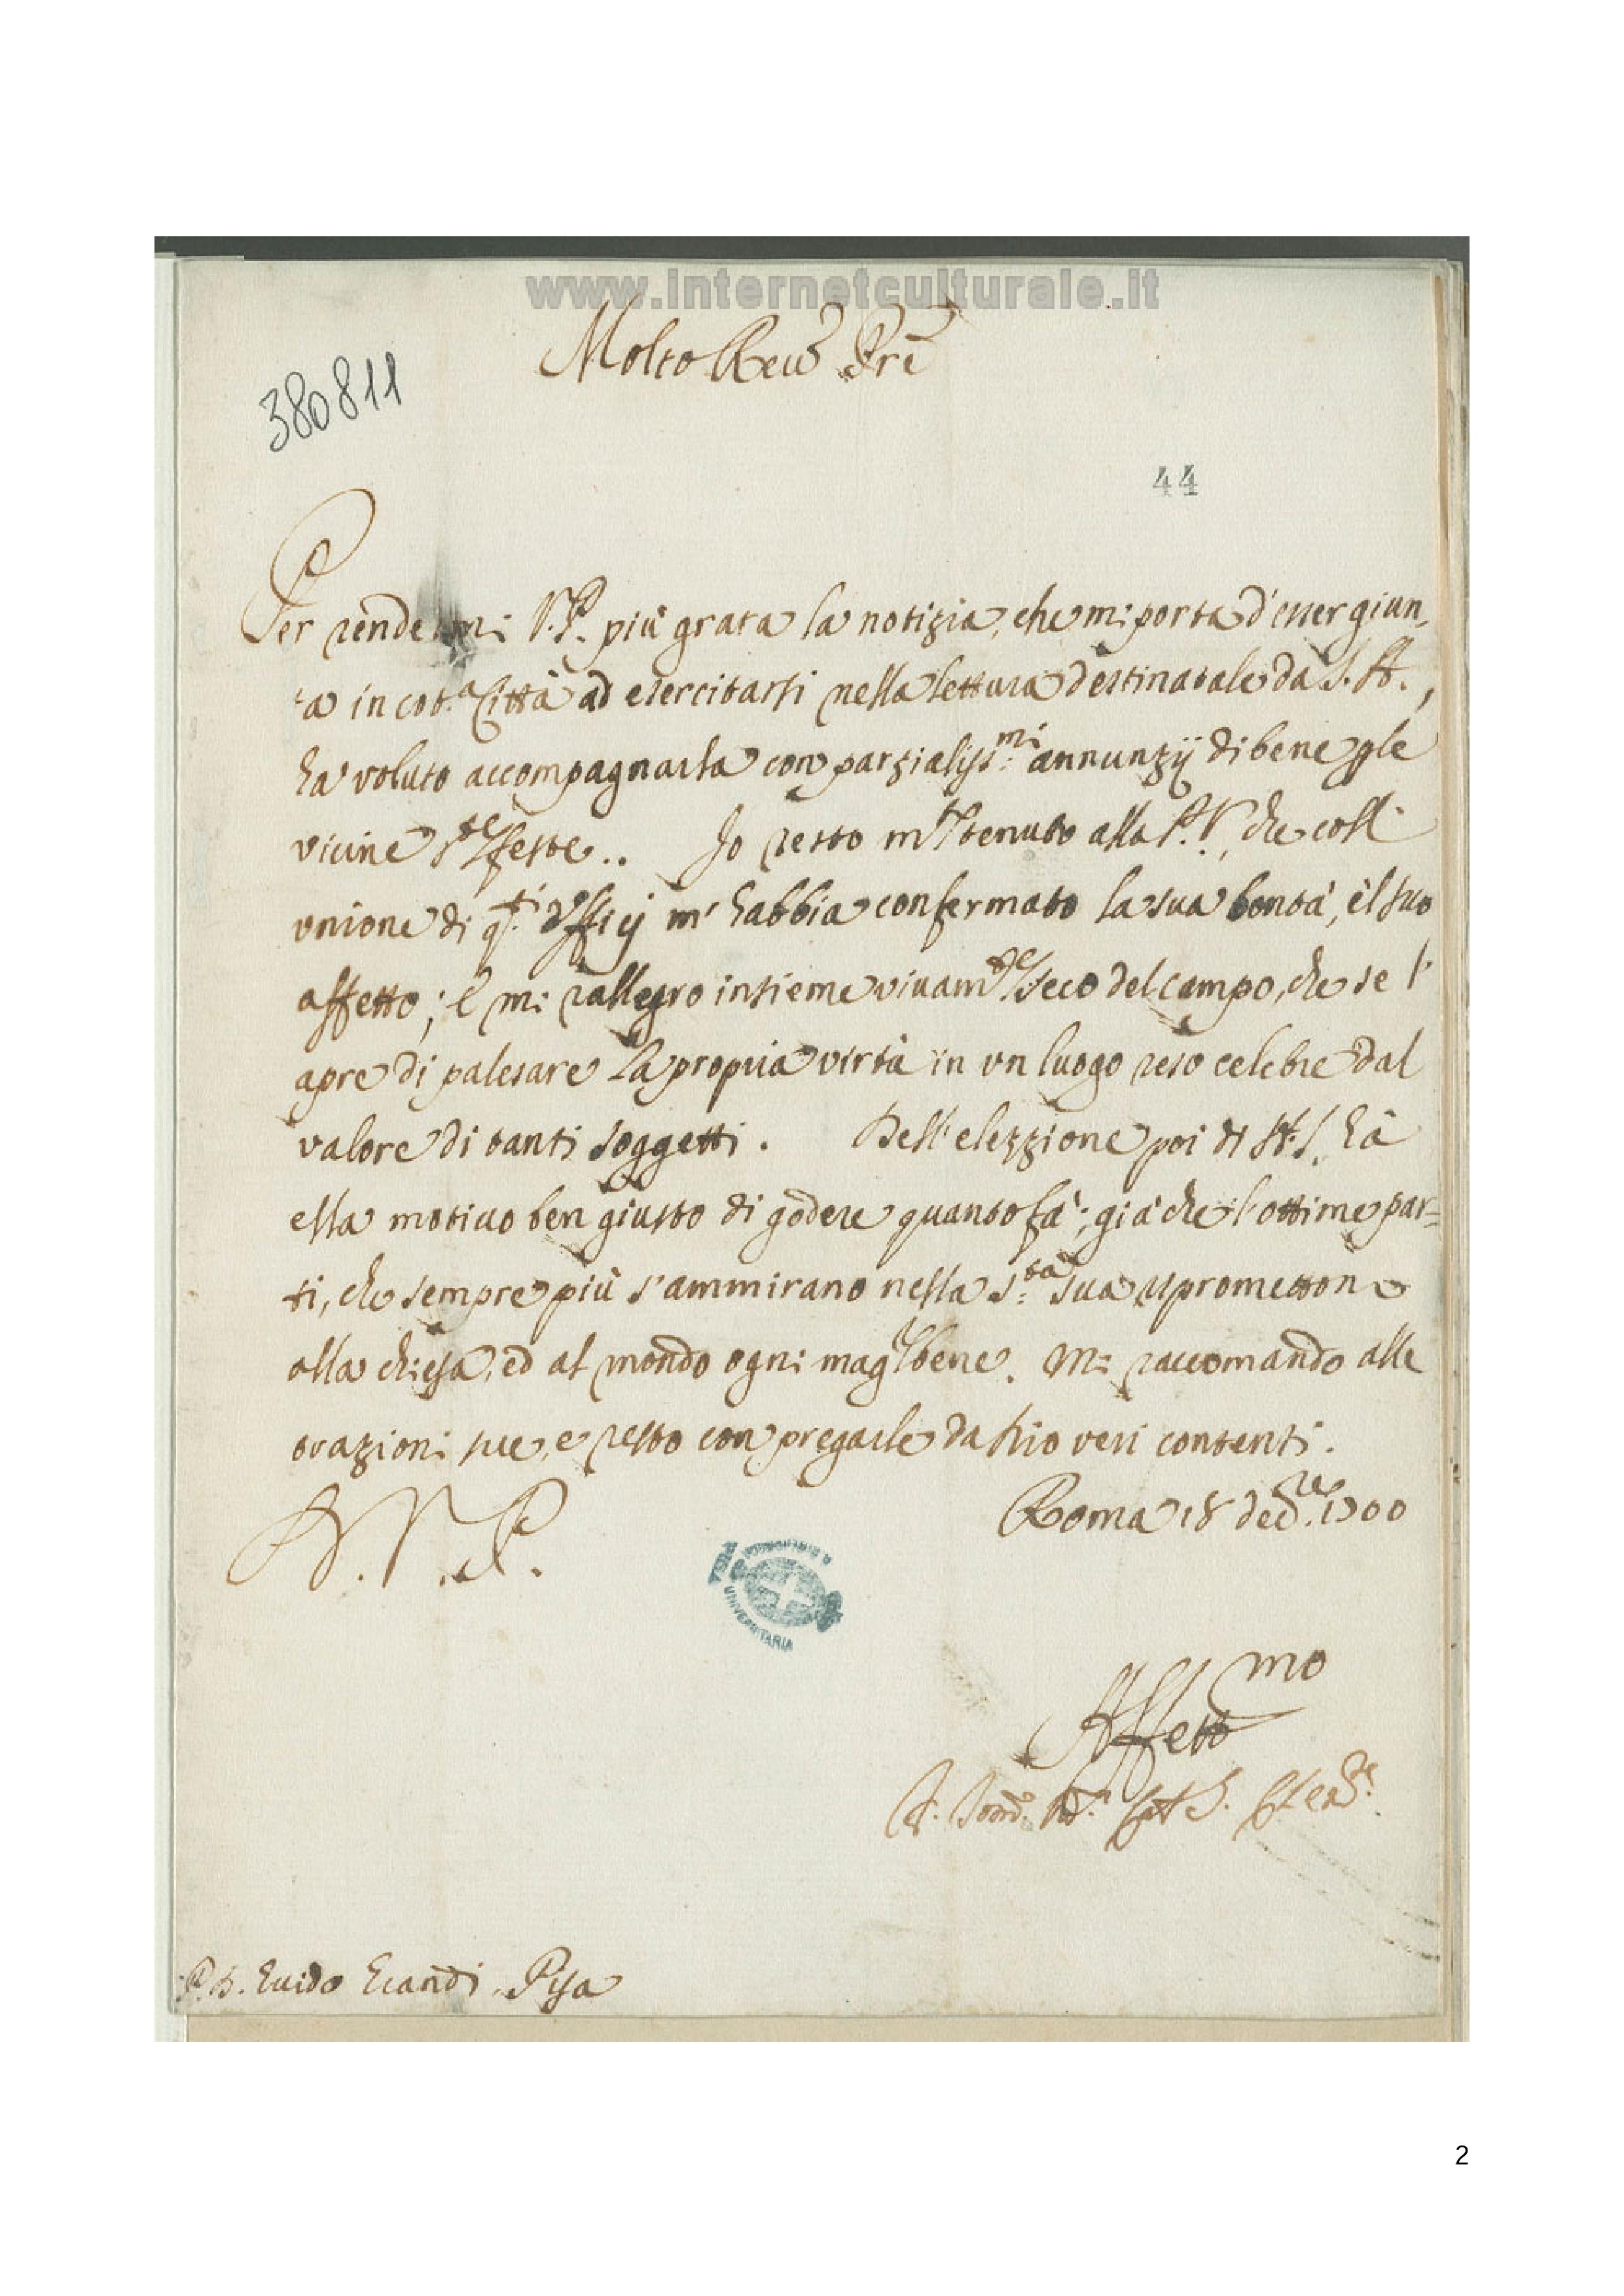 www.internetculturale.it
Molto Revdo Prē
380811
44
Per rende mi V.P. più grata la notizia, che mi porta d'esser giun,
ta in cot.a Città ad esercitarsi nella lettura destinatale da S. A.,
ha voluto accompagnarla con parzialiss.mi annunzij di bene p le
vicine S.te feste.. Io resto m.to tenuto alla P.V., che coll'
unione di q.ti officij m'habbia confermato la sua bontà, e'l suo
affetto; e mi rallegro insieme vivam.te seco del campo, che se l'
apre di palesare la propria virtù in un luogo reso celebre dal
valore di tanti soggetti. Dell'elezzione poi di N.S. hà
ella motivo ben giusto di godere quanto fà; già che l'ottime par=
ti, che sempre più s'ammirano nella S.tà sua ripromettono
alla chiesa, ed al mondo ogni magg.r bene. Mi raccomando alle
orazioni sue, e resto con pregarle da Dio veri contenti.
Roma 18 dec.re 1700
A. V. P.
UNIVERSITARIA
Affett.mo
P. D. Guido Grandi. Pisa
2